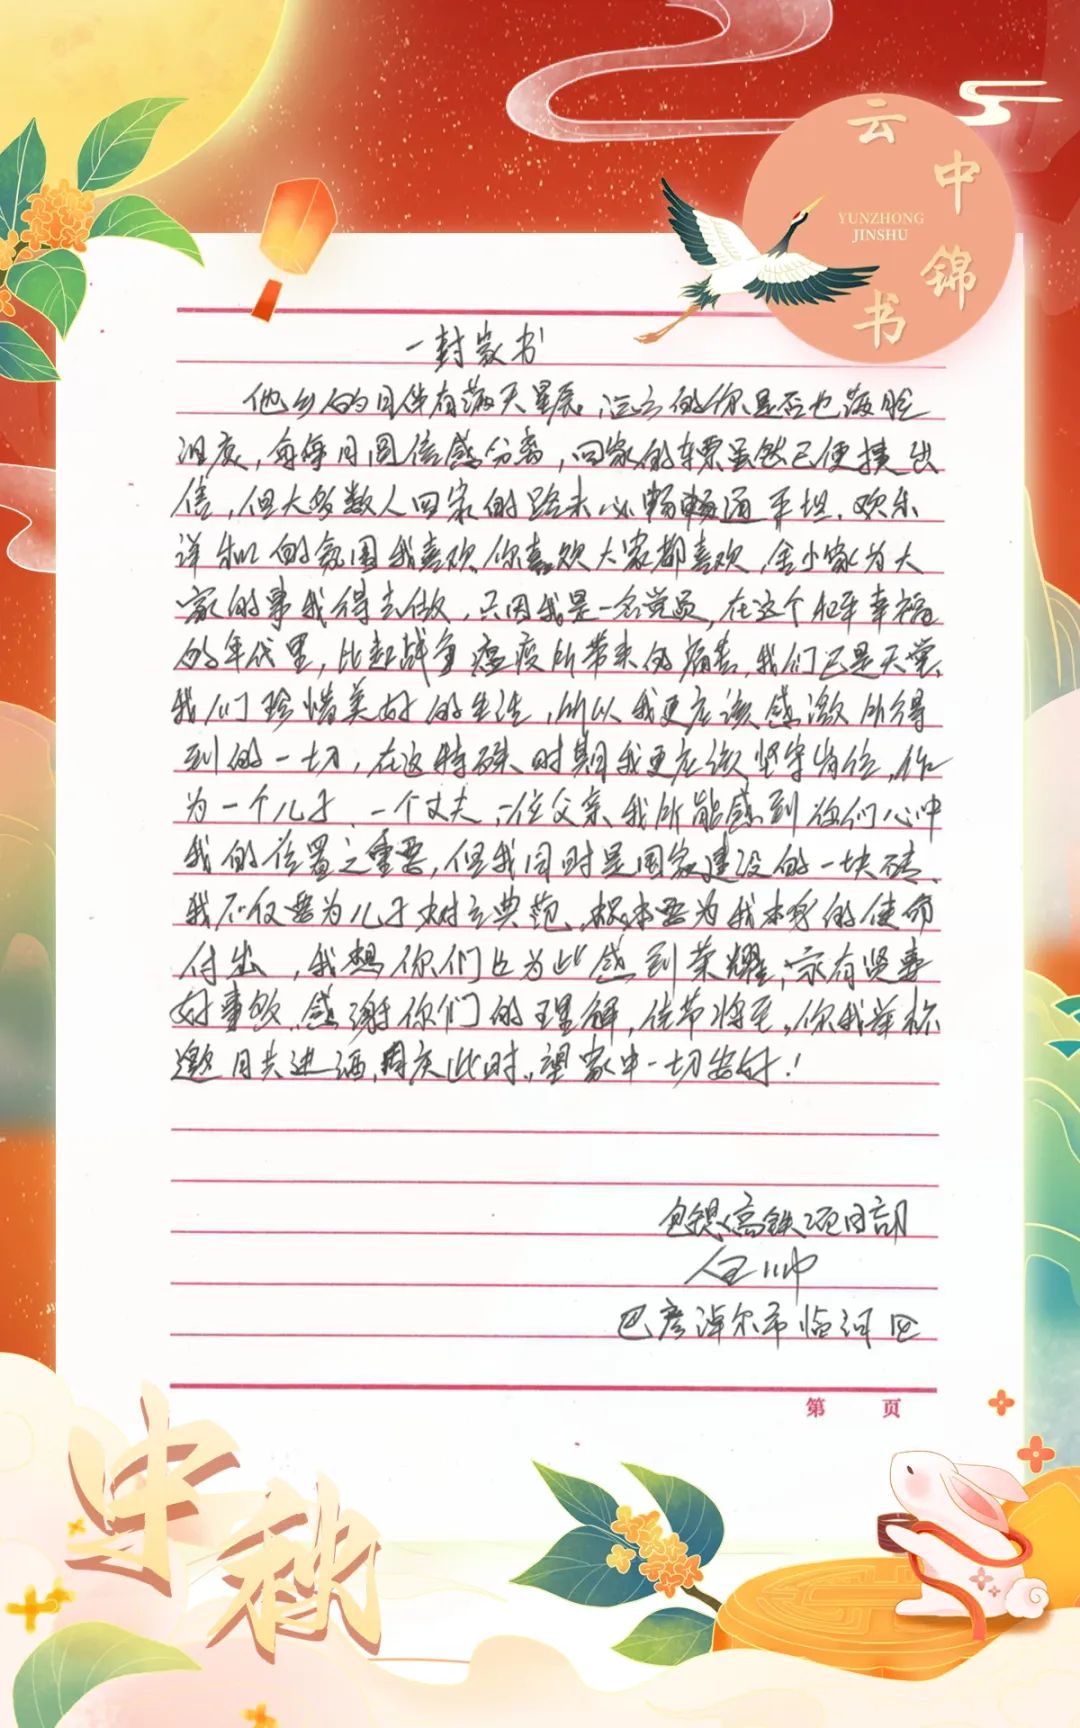 云中锦书
YUNZHONG
JINSHU
一封家书
他乡的月伴有满天星辰，远方的你是否也满脸
泪痕，每每月圆倍感分离，回家的车票虽然已便捷出
售，但大多数人回家的路未必畅畅通平坦。欢乐
详和的氛围我喜欢你喜欢大家都喜欢，舍小家为大
家的事我得去做，只因我是一名党员，在这个和平幸福
的年代里，比起战争瘟疫所带来的痛苦，我们已是天堂，
我们珍惜美好的生活，所以我更应该感激所得
到的一切，在这特殊时期我更应该坚守岗位，作
为一个儿子、一个丈夫、一位父亲，我所能感到你们心中
我的位置之重要，但我同时是国家建设的一块砖，
我不仅要为儿子树立典范，根本要为我本身的使命
付出，我想你们应为此感到荣耀，家有贤妻
好事多，感谢你们的理解，佳节将至，你我举杯
邀月共进酒，同庆此时，望家中一切安好！
包银高铁项目部
巴彦淖尔市临河区
第 页
中秋